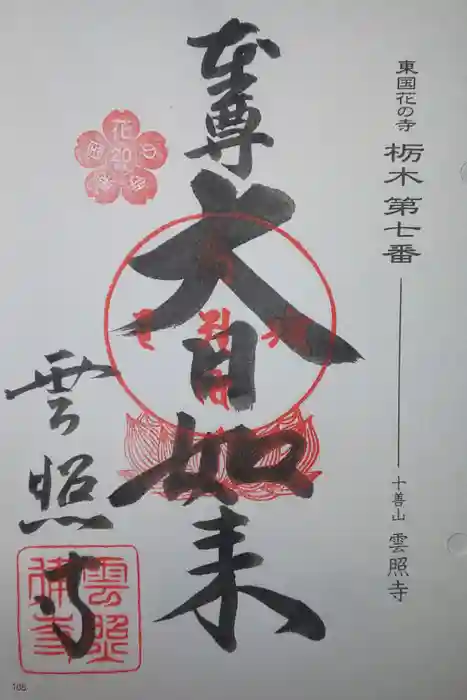 東国花の寺 栃木第七番
十善山 雲照寺
本尊
大日如来
雲照寺
花
20
雲照
106